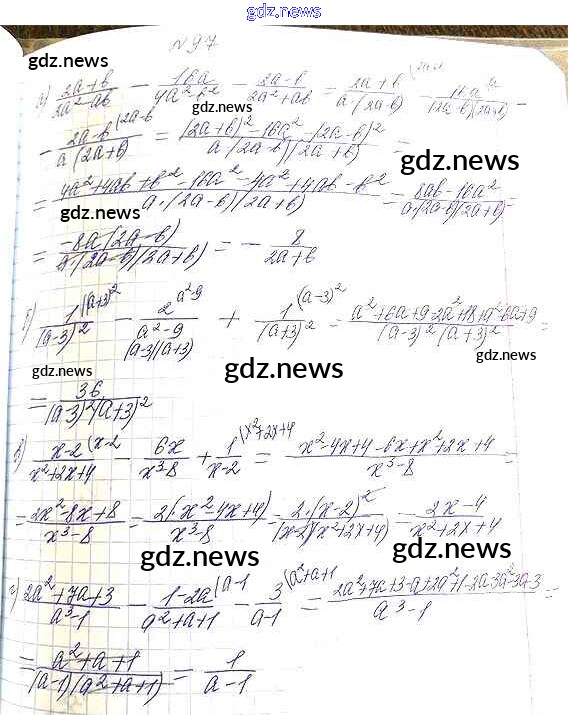 gdz.news
№97
gdz.news
а) (2a+b)/(2a²-ab) - 16a/(4a²-b²) - (2a-b)/(2a²+ab) = (2a+b (2a+b)/(a·(2a-b)) - 16a²/((2a-b)(2a+b)) -
gdz.news
- (2a-b (2a-b)/(a(2a+b)) = ((2a+b)²-16a²-(2a-b)²)/(a(2a-b)(2a+b)) =
gdz.news
= (4a²+4ab+b²-16a²-4a²+4ab-b²)/(a·(2a-b)(2a+b)) = (8ab-16a²)/(a·(2a-b)(2a+b)) =
gdz.news
= (-8a(2a-b))/(a·(2a-b)(2a+b)) = - 8/(2a+b)
б) 1 (a+3)²/(a-3)² - 2 a²-9/(a²-9) (a-3)(a+3) + 1 (a-3)²/(a+3)² = (a²+6a+9-2a²+18+a²-6a+9)/((a-3)²(a+3)²) =
gdz.news
gdz.news gdz.news
= 36/((a-3)²(a+3)²)
в) (x-2 (x-2)/(x²+2x+4) - 6x/(x³-8) + 1 (x²+2x+4/(x-2) = (x²-4x+4-6x+x²+2x+4)/(x³-8) =
= (2x²-8x+8)/(x³-8) = 2(x²-4x+4)/(x³-8) = 2·(x-2)²/((x-2)(x²+2x+4)) = (2x-4)/(x²+2x+4)
gdz.news gdz.news
г) (2a²+7a+3)/(a³-1) - (1-2a (a-1)/(a²+a+1) - 3 (a²+a+1/(a-1) = (2a²+7a+3-a+2a²+1-2a-3a²-3a-3)/(a³-1) =
= (a²+a+1)/((a-1)(a²+a+1)) = 1/(a-1)
gdz.news
gdz.news